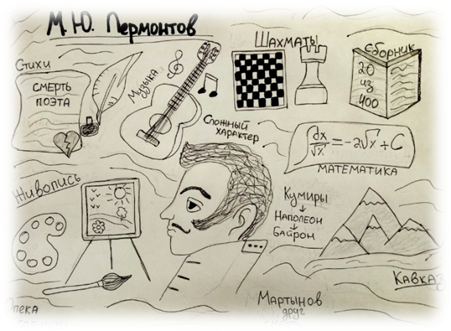 М.Ю. Лермонтов
Стихи
СМЕРТЬ
ПОЭТА
Музыка
ШАХМАТЫ
Сборник
20
из
400
Сложный
характер
∫dx/√x = -2√x + C
МАТЕМАТИКА
Живопись
Кумиры
Наполеон
Байрон
Кавказ
Мартынов
друг